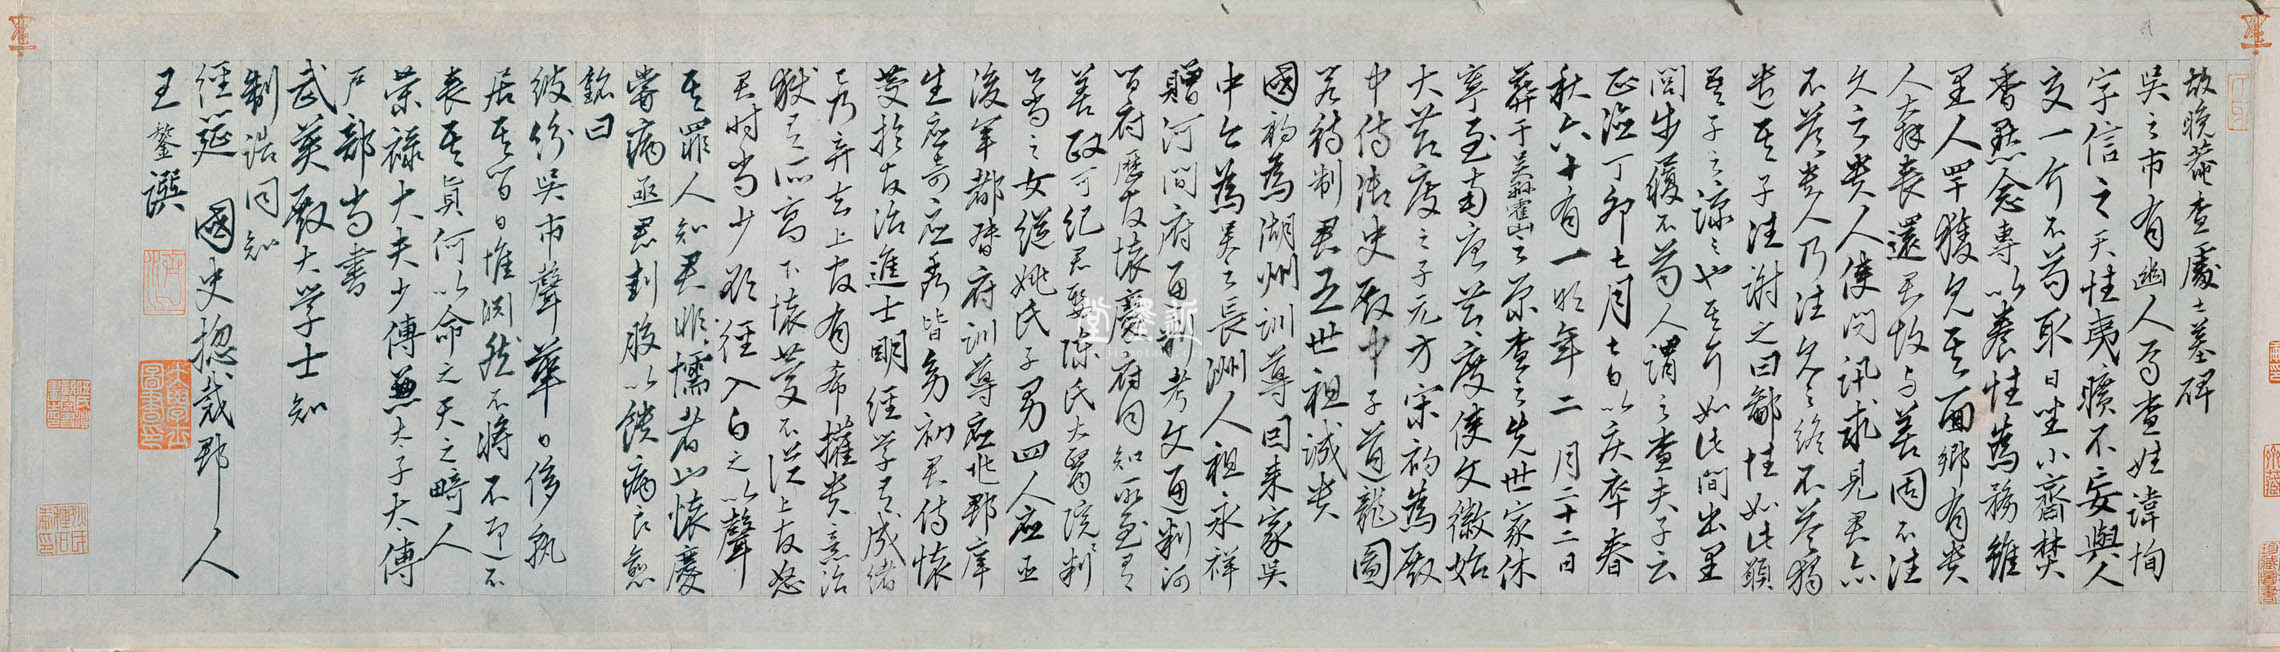 故晚菴查處士墓碑
吳之市有幽人焉查姓諱恂
字信之天性夷曠不妄與人
交一介不茍取日坐小齋焚
香默念專以養性為務雖
里人罕獲見其面鄉有貴
人奔喪還君故與善固不往
久之貴人使問訊求見君亦
不答貴人乃往久之終不答獨
遣其子往謝之曰鄙性如此顧
吾子之諒之也其介如此間出里
閭步履不茍人謂之查夫子云
正德丁卯七月七日以疾卒春
秋六十有一明年二月二十二日
葬于吳縣霍山之原查之先世家休
寧至南唐公之度使文徽始
大其度之子元方宋初為殿
中侍御史殿中子道龍圖
閣待制君五世祖誠貴
國初為湖州訓導因來家吳
中今為吳之長洲人祖永祥
贈河間府通判考文通判河
間府歷官懷慶府同知所至有
善政可紀君娶陳氏太醫院判
公尚之女繼姚氏子男四人應丞
後軍都督府訓導應兆郡庠
生應奇應秀皆幼初君侍懷
慶於官治進士明經學有成緒
已乃棄去上官有希權貴意治
獄有所高下懷慶不從上官怒
君時尚少欲徑入白之以聲
其罪人知君非懦者也懷慶
嘗病亟君刲股以饋病良愈
銘曰
紛紛吳市聲華日侈孰
居其間日惟淵然不將不即不
喪其真何以命之天之畸人
榮祿大夫少傅兼太子太傅
戶部尚書
武英殿大學士知
制誥同知
經筵 國史總裁郡人
王鏊譔
濟之
大學士圖書印